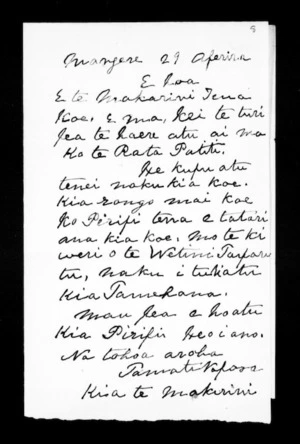 8
Mangere 29 Aperira
E hoa
E te Makarini Tena
Koe. E ma, kei te turi
Pea te haere atu ai ma
Ko te Rata Patiti.
He kupu atu
tenei naku kia koe.
Kia rongo mai koe
Ko Piripi tena e tatari
ana kia koe. mo te ki
weri o te Wetini Taipari
tu, naku i tukiatu
Kia Tamehana.
mau pea e hoatu
Kia Piripi Heoi ano.
Na tohoa aroha
Tamati
Kia te Makarini